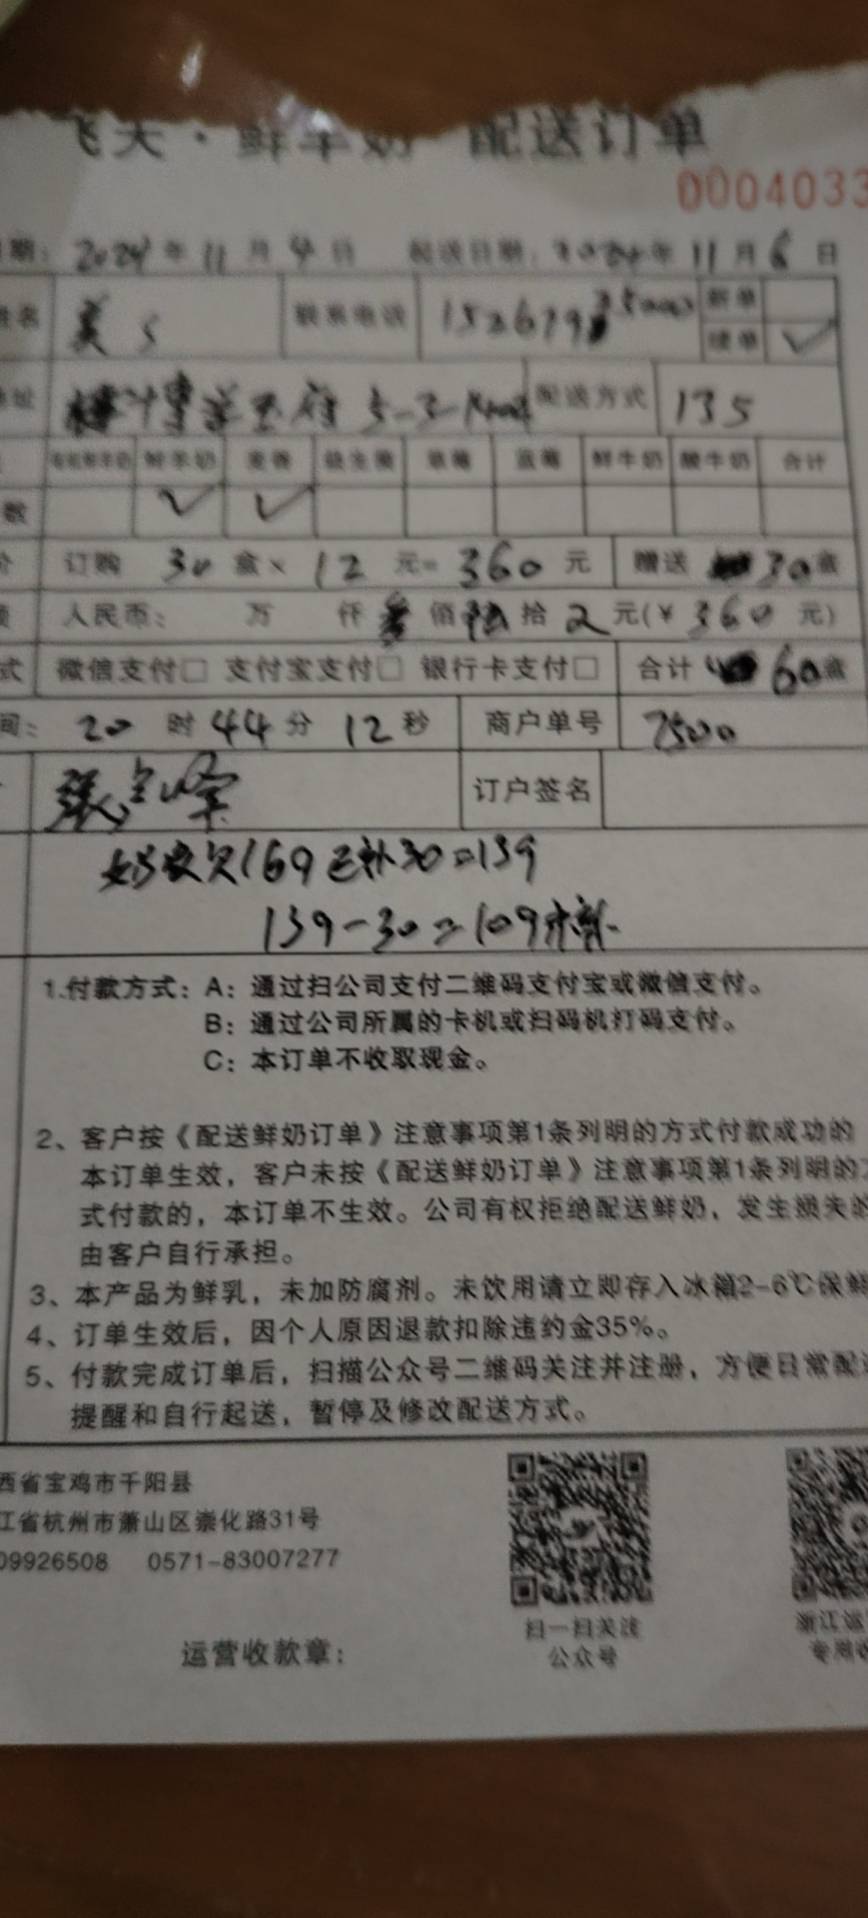 飞天·鲜羊奶 配送订单
0004033
期: 2024年11月4日 起送日期: 2024年11月6日
姓名 联系电话 新单
续单 ✓
址 5-2- 配送方式 135
鲜羊奶 麦香 益生菌 草莓 蓝莓 鲜牛奶 酸牛奶 合计
数 ✓ ✓
订购 30 盒× 12 元= 360 元 赠送 30 盒
人民币: 万 仟 叁 佰 陆 拾 元(¥ 360 元)
式 微信支付□ 支付宝支付□ 银行卡支付□ 合计 60 盒
间: 20 时 44 分 12 秒 商户单号 7500
订户签名
欠169已补30=139
139-30=109
1.付款方式: A: 通过扫公司支付二维码支付宝或微信支付。
B: 通过公司所属的卡机或扫码机打码支付。
C: 本订单不收取现金。
2、客户按《配送鲜奶订单》注意事项第1条列明的方式付款成功的
本订单生效，客户未按《配送鲜奶订单》注意事项第1条列明的方
式付款的，本订单不生效。公司有权拒绝配送鲜奶，发生损失的
由客户自行承担。
3、本产品为鲜乳，未加防腐剂。未饮用请立即存入冰箱2-6℃保鲜
4、订单生效后，因个人原因退款扣除违约金35%。
5、付款完成订单后，扫描公众号二维码关注并注册，方便日常配送
提醒和自行起送，暂停及修改配送方式。
西省宝鸡市千阳县
江省杭州市萧山区崇化路31号
09926508 0571-83007277
扫一扫关注
公众号
浙江运
专用收
运营收款章: